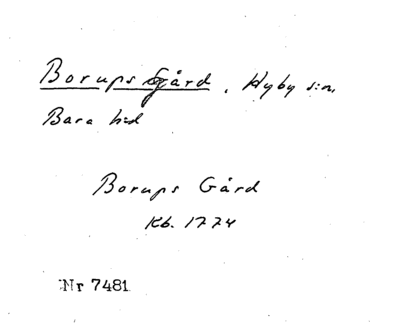 Borups Gård, Hyby sn,
Bara hd
Borups Gård
Kb. 1774
Nr 7481